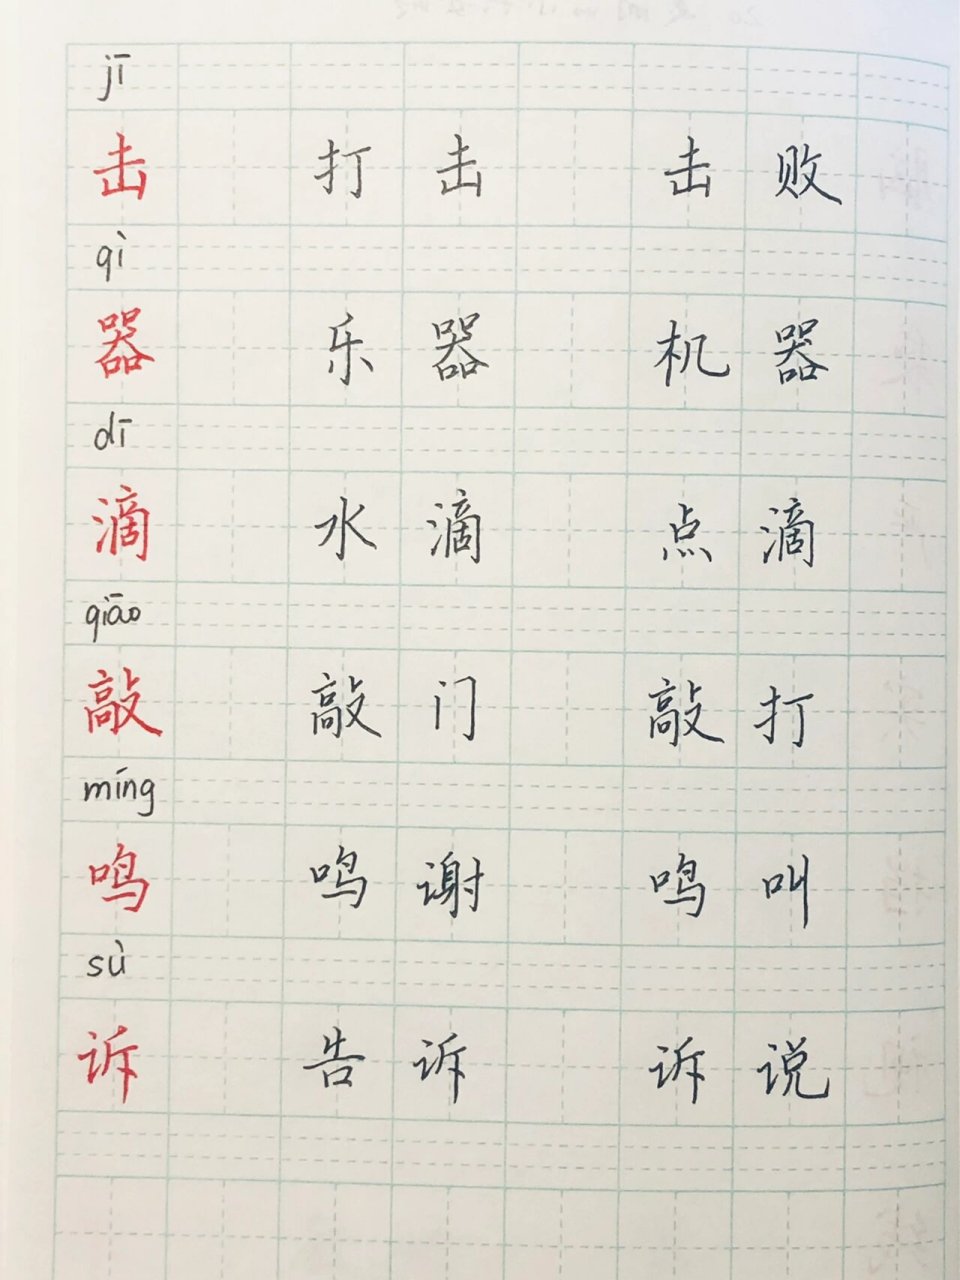 jī
击 打击 击败
qì
器 乐器 机器
dī
滴 水滴 点滴
qiāo
敲 敲门 敲打
míng
鸣 鸣谢 鸣叫
sù
诉 告诉 诉说